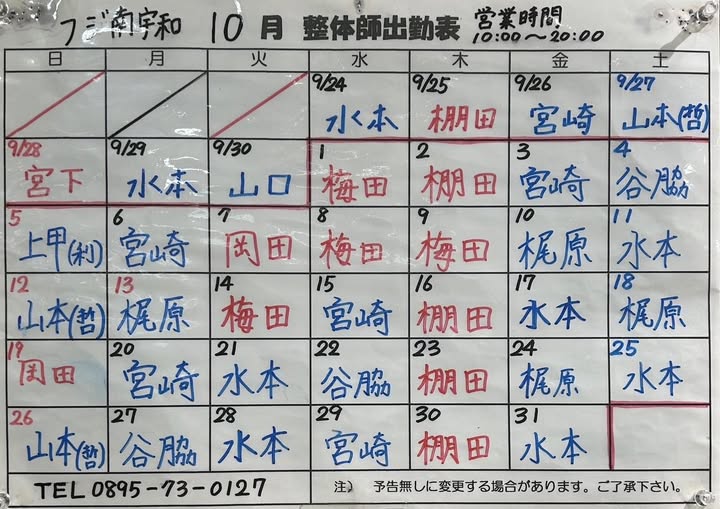 フジ南宇和 10月 整体師出勤表 営業時間
10:00〜20:00
日 月 火 水 木 金 土
9/24 9/25 9/26 9/27
水本 棚田 宮崎 山本(哲)
9/28 9/29 9/30 1 2 3 4
宮下 水本 山口 梅田 棚田 宮崎 谷脇
5 6 7 8 9 10 11
上甲(利) 宮崎 岡田 梅田 梅田 梶原 水本
12 13 14 15 16 17 18
山本(哲) 梶原 梅田 宮崎 棚田 水本 梶原
19 20 21 22 23 24 25
岡田 宮崎 水本 谷脇 棚田 梶原 水本
26 27 28 29 30 31
山本(哲) 谷脇 水本 宮崎 棚田 水本
TEL 0895-73-0127 注) 予告無しに変更する場合があります。ご了承下さい。